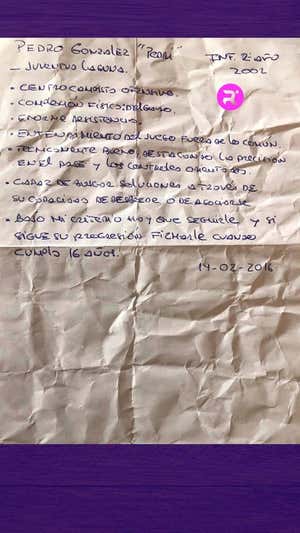 PEDRO GONZALEZ "PEDRI" INF. 2º AÑO
- JUVENTUD LAGUNA. 2002
• CENTROCAMPISTA OFENSIVO.
• COMPLEXIÓN FÍSICA: DELGADO.
• ENORME RESISTENCIA.
• ENTENDIMIENTO DEL JUEGO FUERA DE LO COMÚN.
• TECNICAMENTE BUENO, DESTACANDO LA PRECISIÓN
EN EL PASE Y LOS CONTROLES ORIENTADOS.
• CAPAZ DE BUSCAR SOLUCIONES A TRAVÉS DE
SU CAPACIDAD DE DESBORDE O DE ASOCIARSE.
• BAJO MI CRITERIO HAY QUE SEGUIRLE Y SI
SIGUE SU PROGRESIÓN FICHARLE CUANDO
CUMPLA 16 AÑOS.
14-02-2016